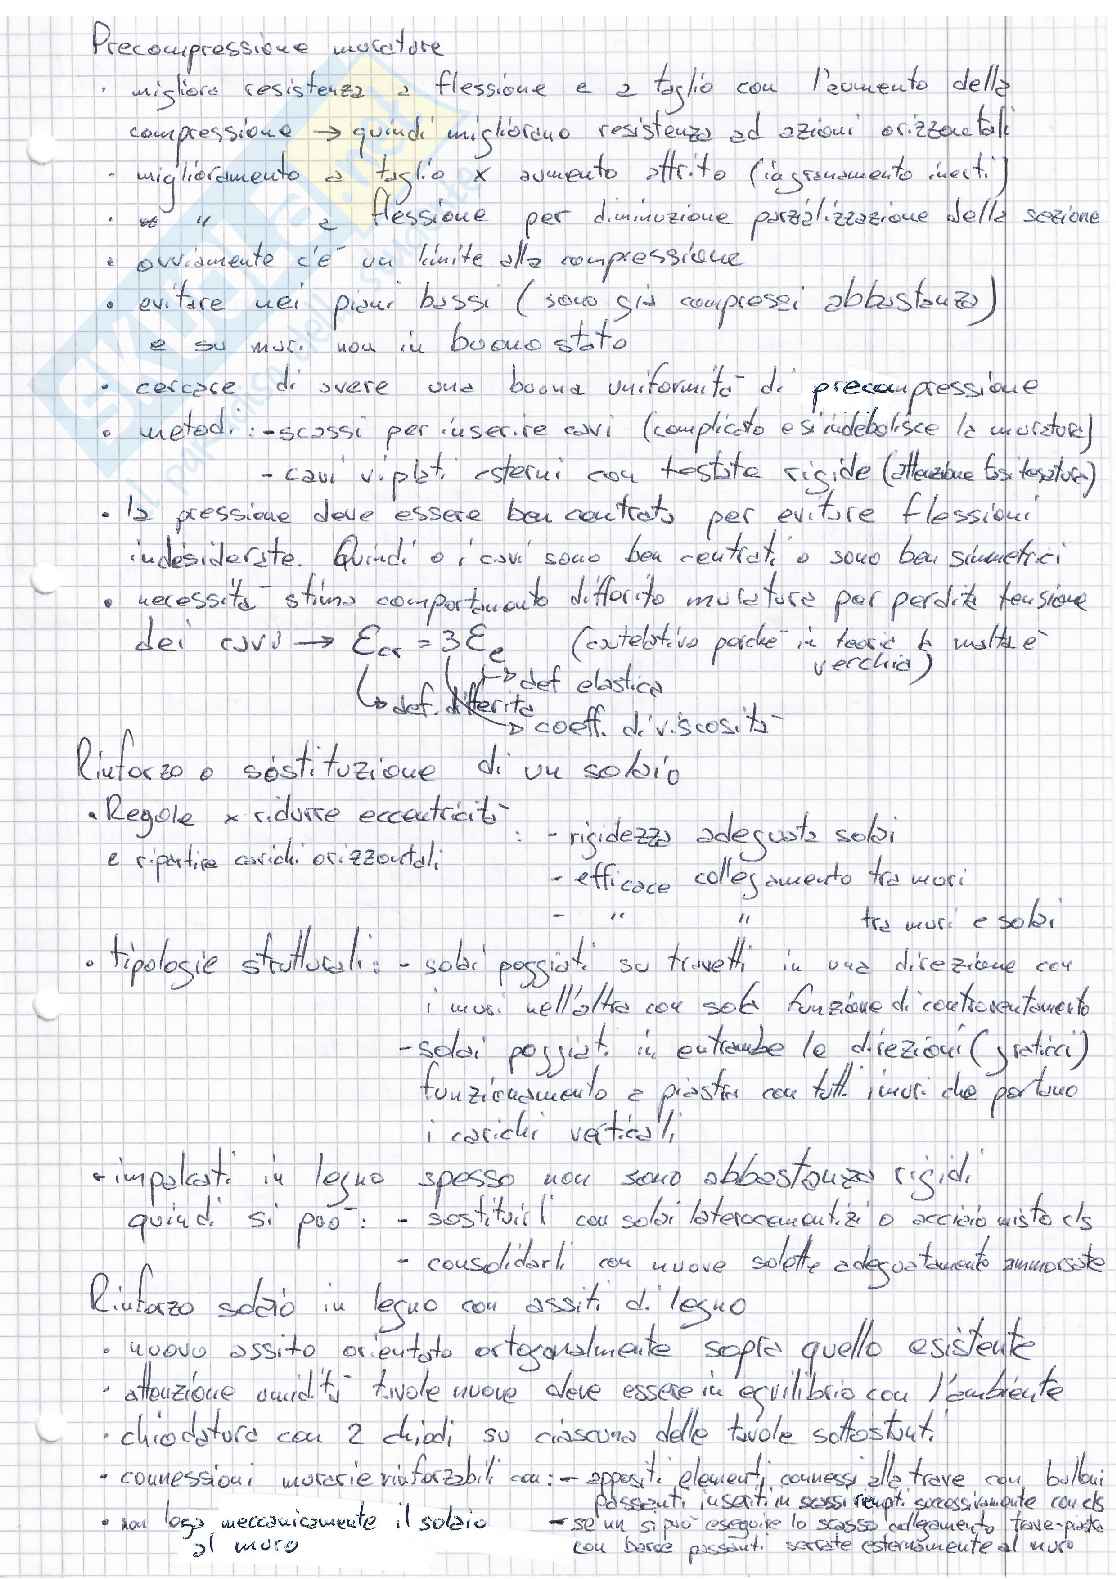 Precompressione murature
· migliora resistenza a flessione e a taglio con l'aumento della
compressione → quindi migliorano resistenza ad azioni orizzontali
- miglioramento a taglio x aumento attrito (ingranamento inerti)
· " a flessione per diminuzione parzializzazione della sezione
• ovviamente c'è un limite alla compressione
• evitare nei piani bassi (sono già compressi abbastanza)
e su muri non in buono stato
• cercare di avere una buona uniformità di precompressione
• metodi: - scassi per inserire cavi (complicato e si indebolisce la muratura)
- cavi viplati esterni con testate rigide (attenzione fasi tesatura)
• la pressione deve essere ben centrata per evitare flessioni
indesiderate. Quindi o i cavi sono ben centrati o sono ben simmetrici
• necessità stima comportamento differito muratura per perdita tensione
dei cavi → Ɛcr = 3Ɛe (cautelativo perché in teoria la malta è
vecchia)
↳ def elastica
↳ def. differita
→ coeff. di viscosità
Rinforzo o sostituzione di un solaio
• Regole x ridurre eccentricità
e ripartire carichi orizzontali
: - rigidezza adeguata solai
- efficace collegamento tra muri
- " " tra muri e solai
• tipologie strutturali: - solai poggiati su travetti in una direzione con
i muri nell'altra con sola funzione di controventamento
- solai poggiati in entrambe le direzioni (graticci)
funzionamento a piastra con tutti i muri che portano
i carichi verticali
• impalcati in legno spesso non sono abbastanza rigidi
quindi si può: - sostituirli con solai laterocementizi o acciaio misto cls
- consolidarli con nuove solette adeguatamente ammorsate
Rinforzo solaio in legno con assiti di legno
• nuovo assito orientato ortogonalmente sopra quello esistente
· attenzione umidità tavole nuove deve essere in equilibrio con l'ambiente
· chiodatura con 2 chiodi su ciascuna delle tavole sottostanti
· connessioni murarie rinforzabili con: - appositi elementi connessi alla trave con bulloni
passanti inseriti in scassi riempiti successivamente con cls
• non lega meccanicamente il solaio
al muro
- se un si può eseguire lo scasso collegamento trave-piastra
con barre passanti serrate esternamente al muro